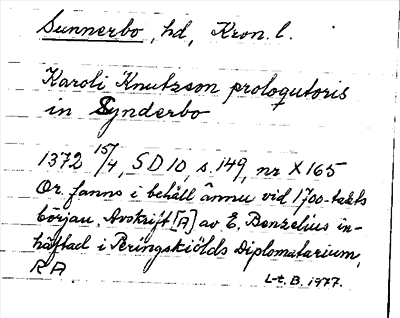 Sunnerbo, hd, Kron. l.
Karoli Knutzson proloqutoris
in Synderbo
1372 15/4, SD 10, s. 149, nr X 165
Or. fanns i behåll ännu vid 1700-talets
början. Avskrift [A] av E. Benzelius in-
häftad i Peringskiölds Diplomatarium,
RA
L-t. B. 1977.